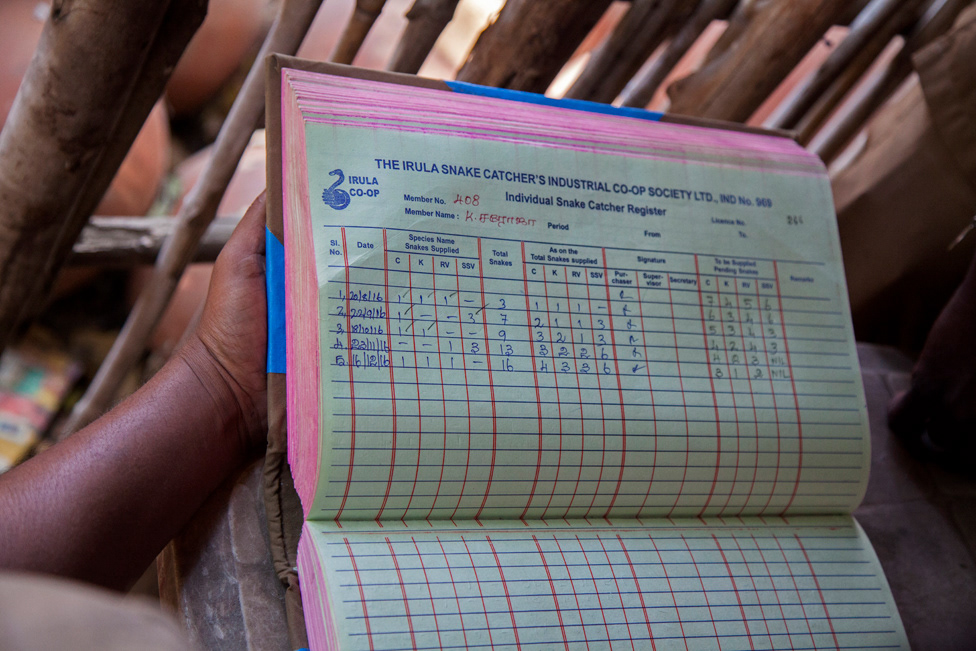 THE IRULA SNAKE CATCHER'S INDUSTRIAL CO-OP SOCIETY LTD., IND No. 969
IRULA CO-OP
Individual Snake Catcher Register
Member No. 408
Licence No.
Member Name :
Period From To.
Sl. No. Date Species Name Snakes Supplied Total Snakes As on the Total Snakes supplied Signature To be Supplied Pending Snakes Remarks
C K RV SSV C K RV SSV Purchaser Supervisor Secretary C K RV SSV
1, 20/8/16 1 1 1 - 3 1 1 1 - 7 4 5 6
2, 22/9/16 1 - - 3 7 2 1 1 3 6
3, 18/10/16 1 1 - - 9 3 2 1 3 5 3 4 3
4. 23/11/16 - - 1 3 13 3 2 2 6 4 2 4 3
5. 16/12/16 1 1 1 - 16 4 3 3 6 4 2 3 NIL
3 1 2 NIL